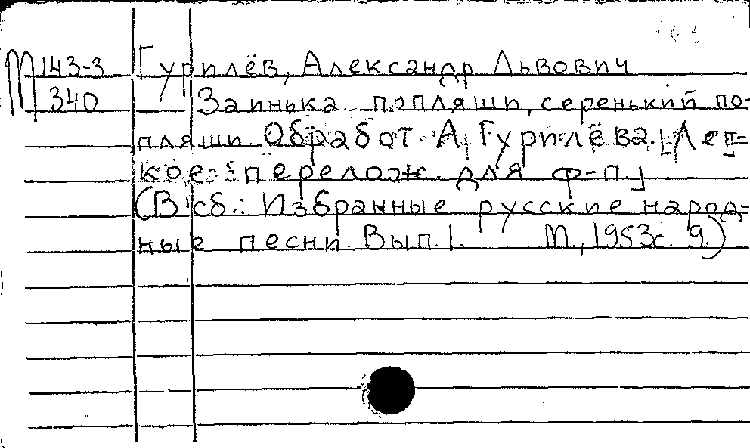 М 143-3 Гурилёв, Александр Львович
340 Заинька попляши, серенький по-
пляши. Обработ. А. Гурилёва. [Лег-
кое перелож. для ф-п.]
(В сб.: Избранные русские народ-
ные песни Вып. 1. М., 1953 с. 9.)